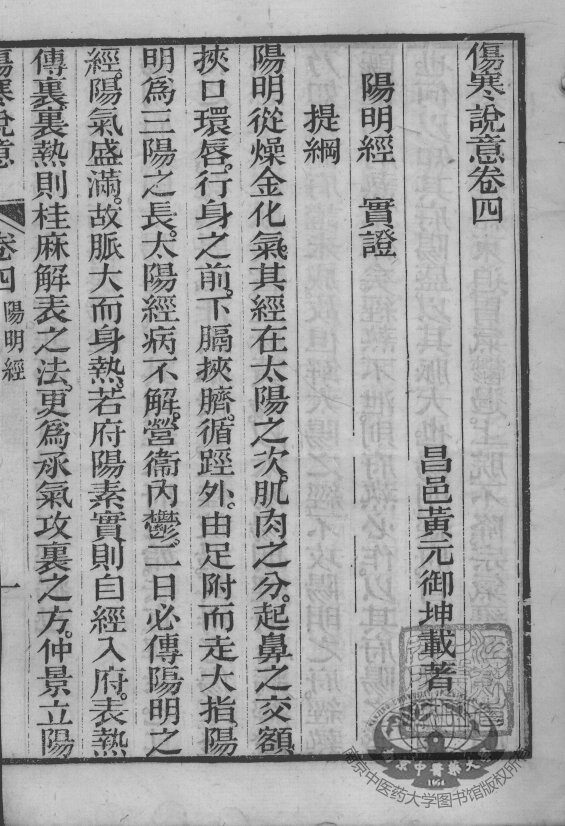 傷寒說意卷四
昌邑黃元御坤載著
陽明經　實證
提綱
陽明從燥金化氣。其經在太陽之次。肌肉之分。起鼻之交頞
挾口環唇。行身之前。下膈挾臍。循脛外。由足附而走大指。陽
明為三陽之長。太陽經病不解。營衞內鬱。二日必傳陽明之
經。陽氣盛滿。故脈大而身熱。若府陽素實。則自經入府。表熱
傳裏。裏熱則桂麻解表之法。更為承氣攻裏之方。仲景立陽
傷寒說意
卷四 陽明經
一
南京中医药大学图书馆版权所有
1954